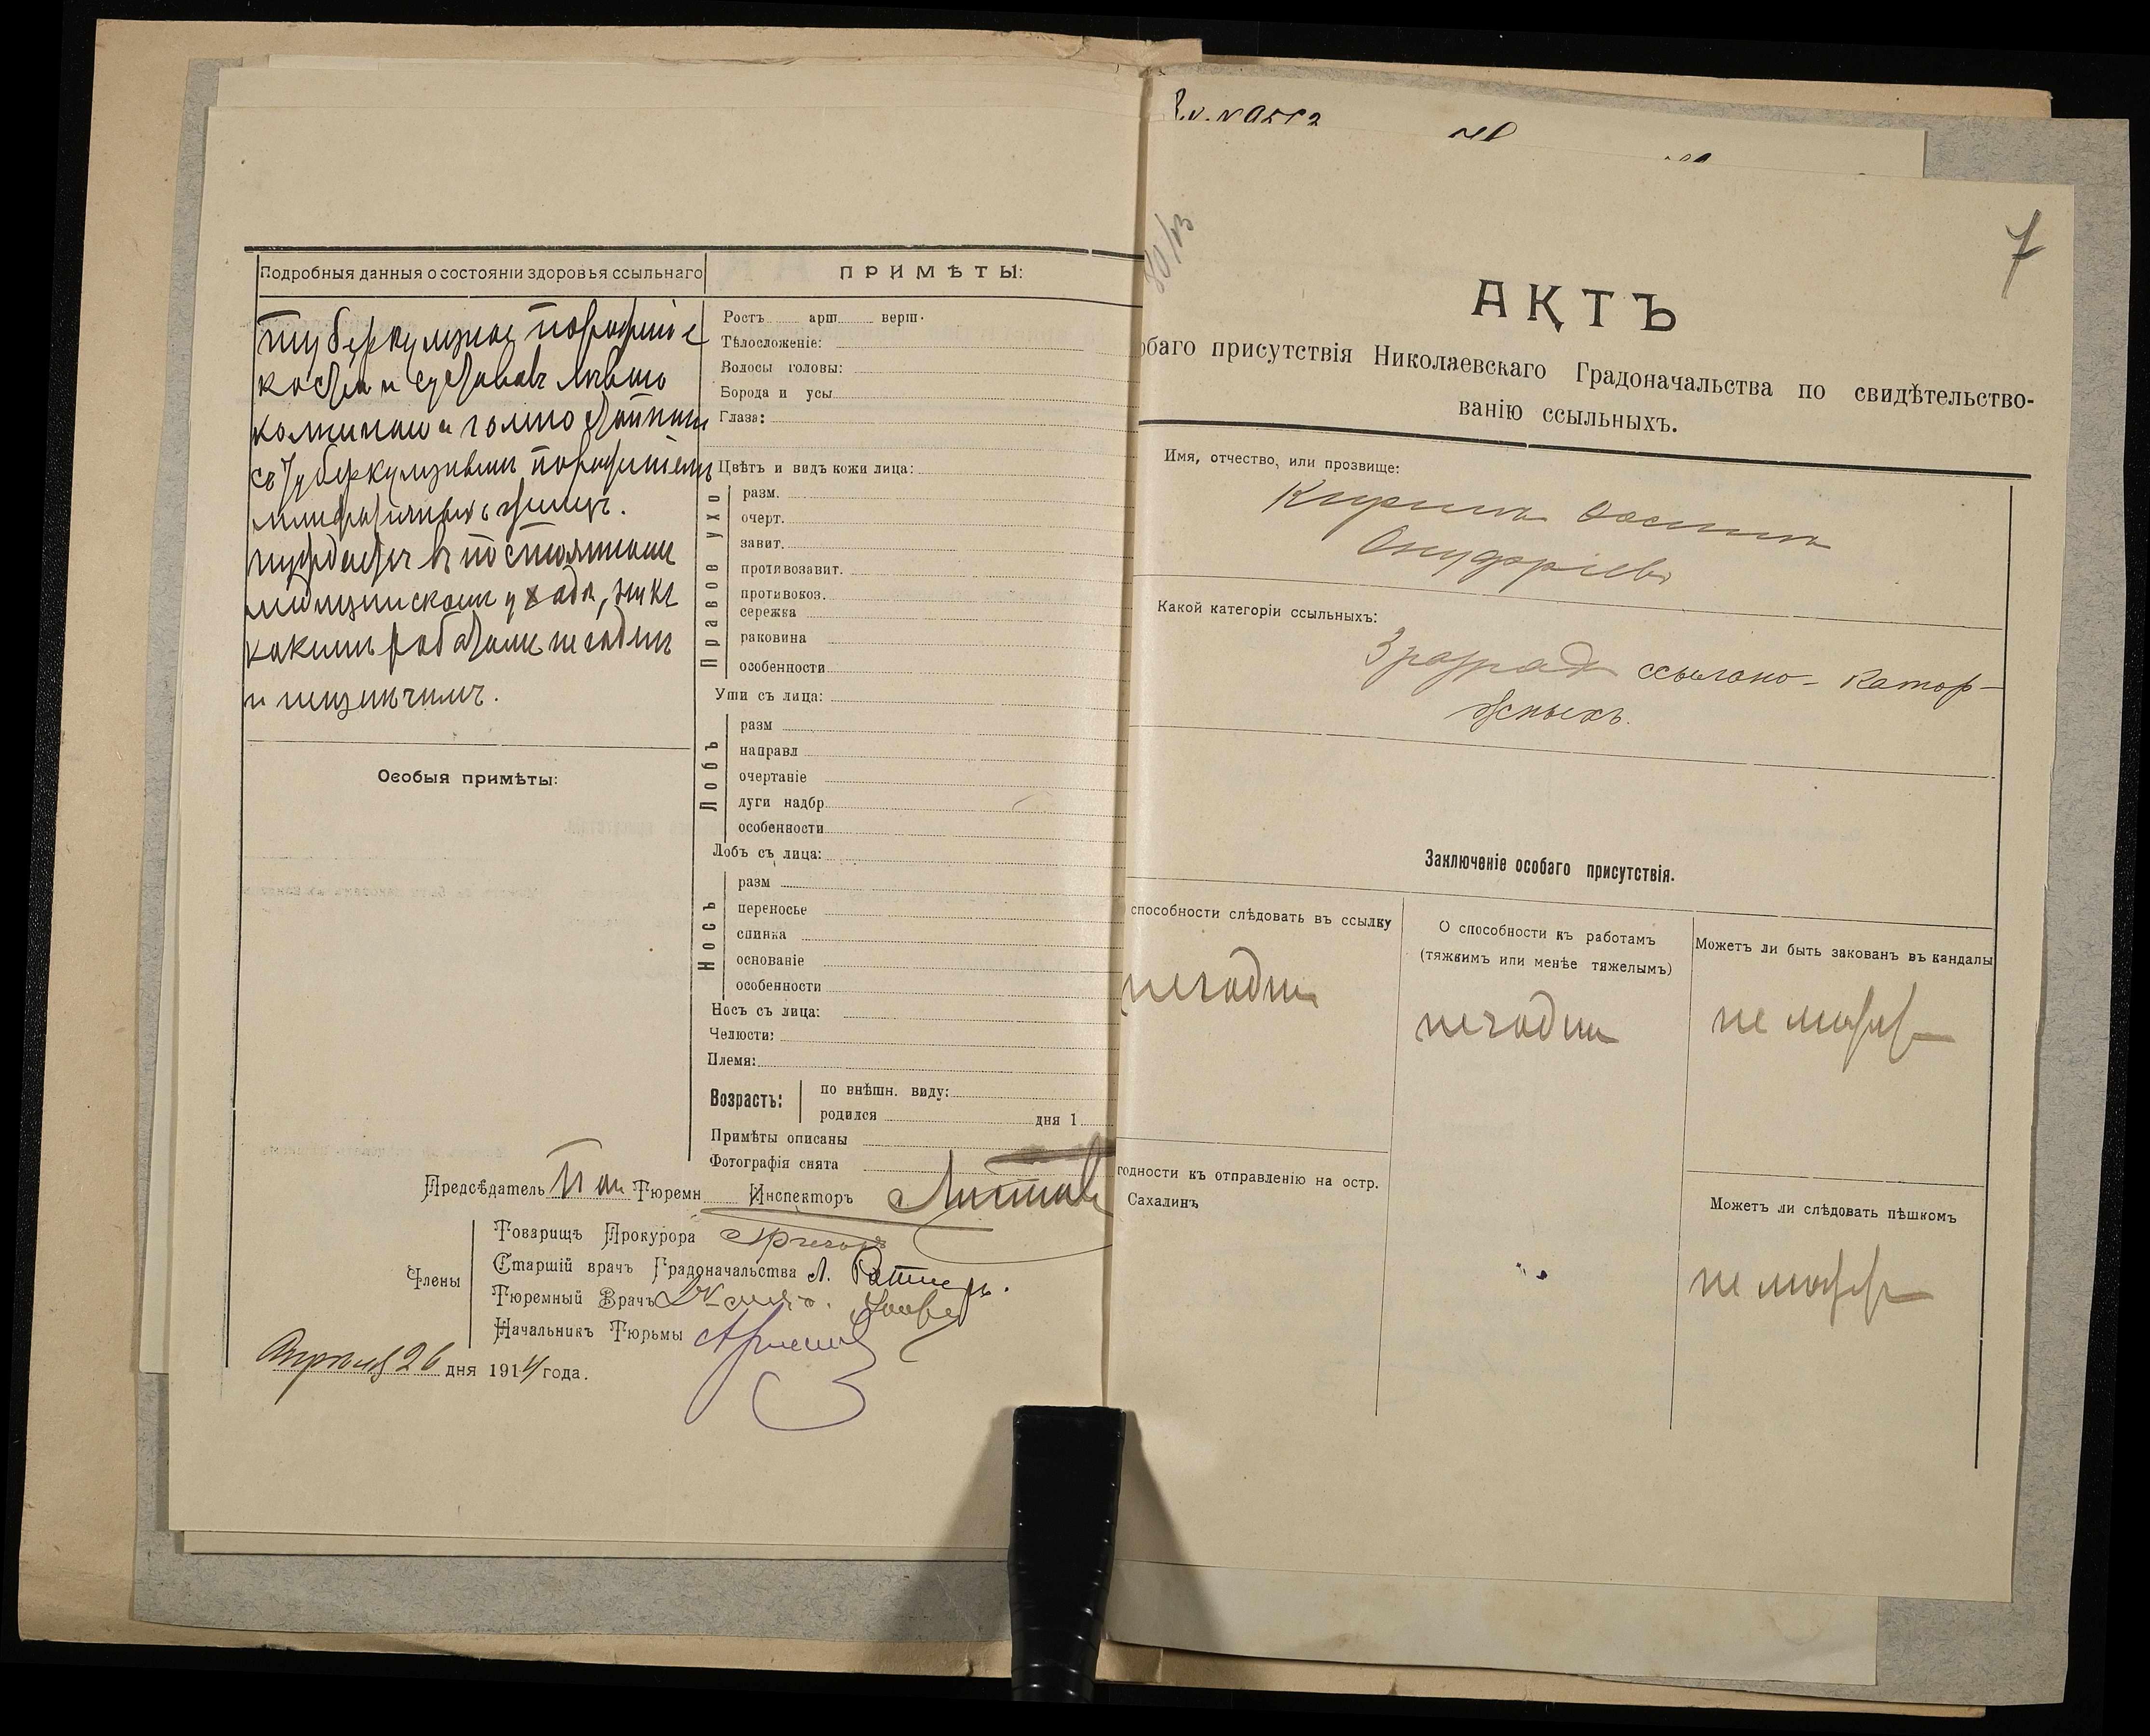 Подробныя данныя о состоянiи здоровья ссыльнаго
туберкулезное пораженiе
костей и суставовъ лѣваго
колѣннаго и голеностопнаго
съ туберкулезнымъ пораженiемъ
лимфатическихъ железъ.
нуждается въ постоянномъ
медицинскомъ уходѣ, ни къ
какимъ работамъ не годенъ
и неизлѣчимъ.
Особыя примѣты:
ПРИМѢТЫ:
Ростъ арш. верш.
Тѣлосложенiе:
Волосы головы:
Борода и усы
Глаза:
Цвѣтъ и видъ кожи лица:
Правое ухо
разм.
очерт.
завит.
противозавит.
противокоз.
сережка
раковина
особенности
Уши съ лица:
Лобъ
разм
направл
очертанiе
дуги надбр
особенности
Лобъ съ лица:
Носъ
разм
переносье
спинка
основанiе
особенности
Носъ съ лица:
Челюсти:
Племя:
Возрастъ:
по внѣшн. виду:
родился дня 1
Примѣты описаны
Фотографiя снята
Предсѣдатель Тюремн Инспекторъ
Члены
Товарищъ Прокурора
Старшiй врачъ Градоначальства Л.
Тюремный Врачъ
Начальникъ Тюрьмы
Апрѣля 26 дня 1914 года.
80/13
7
АКТЪ
обаго присутствiя Николаевскаго Градоначальства по свидѣтельство-
ванiю ссыльныхъ.
Имя, отчество, или прозвище:
Кирилъ
Какой категорiи ссыльныхъ:
3 разряда ссыльно-катор-
жныхъ.
Заключенiе особаго присутствiя.
способности слѣдовать въ ссылку
негоденъ
О способности къ работамъ
(тяжкимъ или менѣе тяжелымъ)
негоденъ
Можетъ ли быть закованъ въ кандалы
не можетъ
годности къ отправленiю на остр.
Сахалинъ
Можетъ ли слѣдовать пѣшкомъ
не можетъ